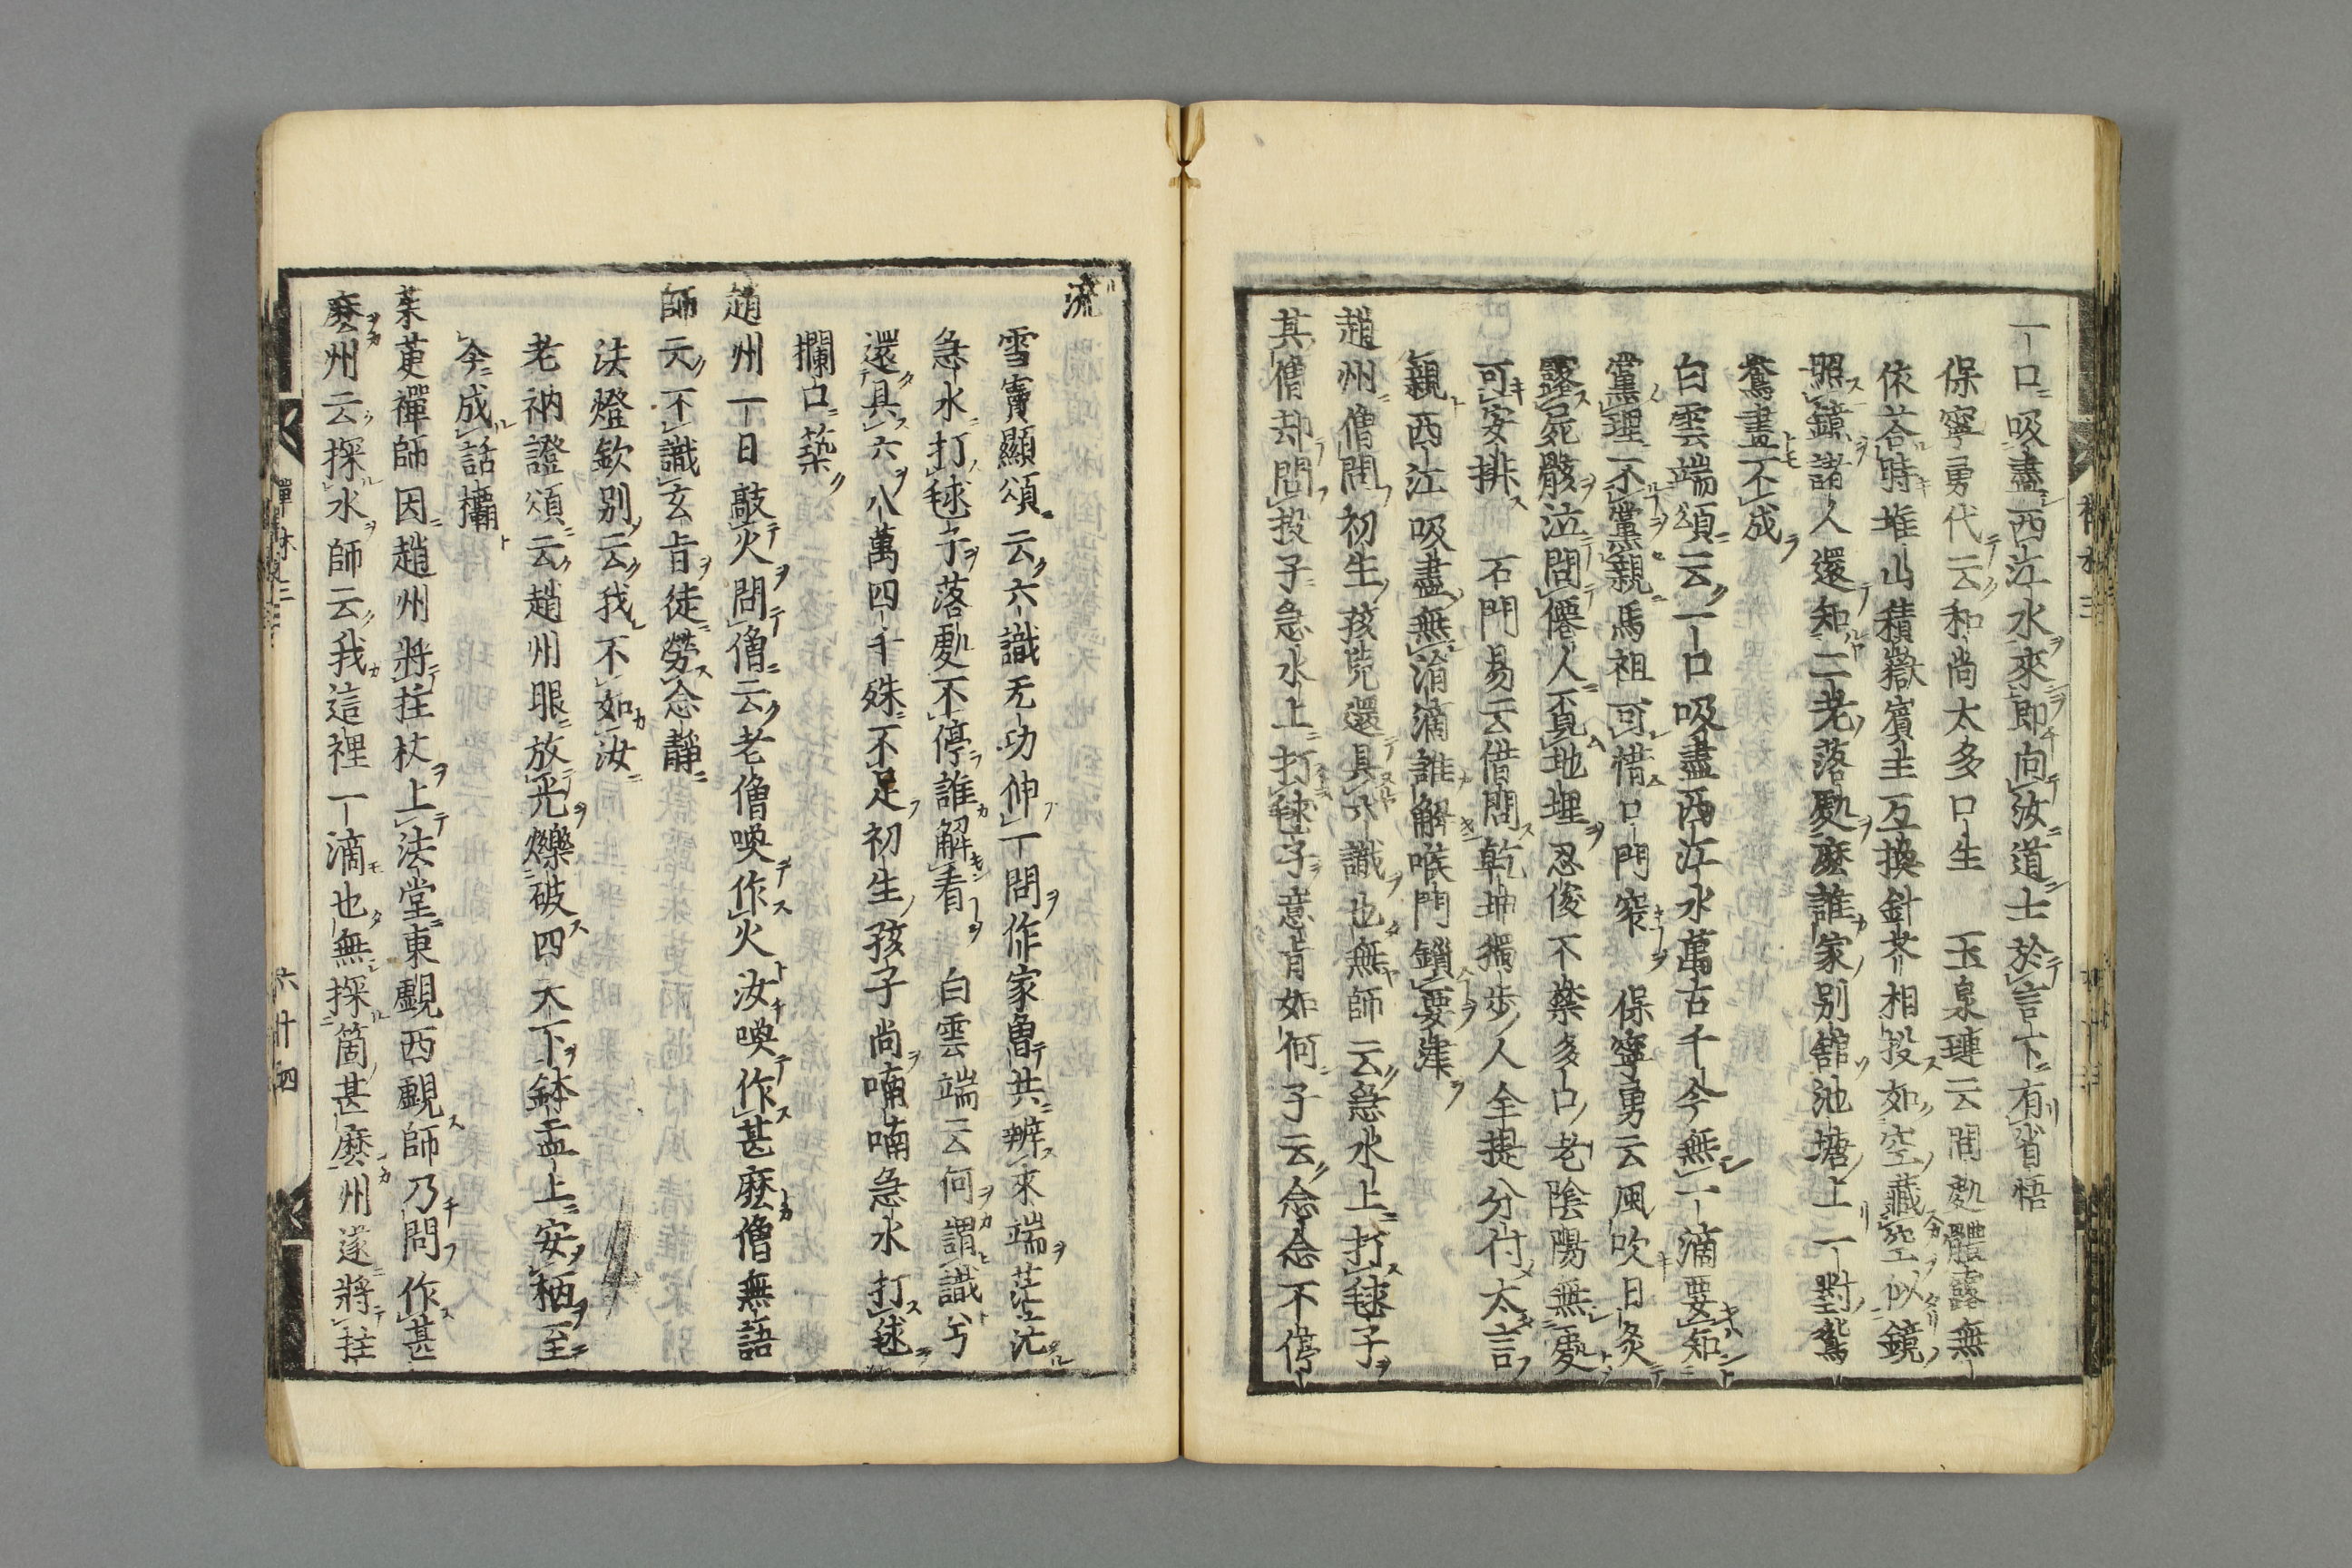 一口吸盡西江水來即向汝道士於言下有省悟
保寧勇代云和尚太多口生 玉泉璉云間氎體露無
依荅時堆山積嶽賓主互換針芥相投如空藏空似鏡
照鏡諸人還知二老落處麼誰家別舘池塘上一對鴛
鴦畫不成
白雲端頌云一口吸盡西江水萬古千今無一滴要知
黨理不黨親馬祖可惜口門窄 保寧勇云風吹日炙
露屍骸泣問僊人覓地埋忍俊不禁多口老陰陽無處
可安排 石門易云借問乾坤獨歩人全提分付太言
親西江吸盡無涓滴誰解喉門鎖要津
趙州僧問初生孩兒還具六識也無師云急水上打毬子
其僧却問投子急水上打毬子意旨如何子云念念不停
流
雪竇顯頌云六識无功伸一問作家曾共辨來端茫茫
急水打毬子落處不停誰解看 白雲端云何謂識兮
還具六八萬四千殊不足初生孩子尚喃喃急水打毬
攔口築
趙州一日敲火問僧云老僧喚作火汝喚作甚麼僧無語
師云不識玄旨徒勞念靜
法燈欽別云我不如汝
老衲證頌云趙州眼放光爍破四天下鉢盂上安柄至
今成話欛
茱萸禪師因趙州將拄杖上法堂東覰西覰師乃問作甚
麼州云探水師云我這裡一滴也無探箇甚麼州遂將拄
六 廿四